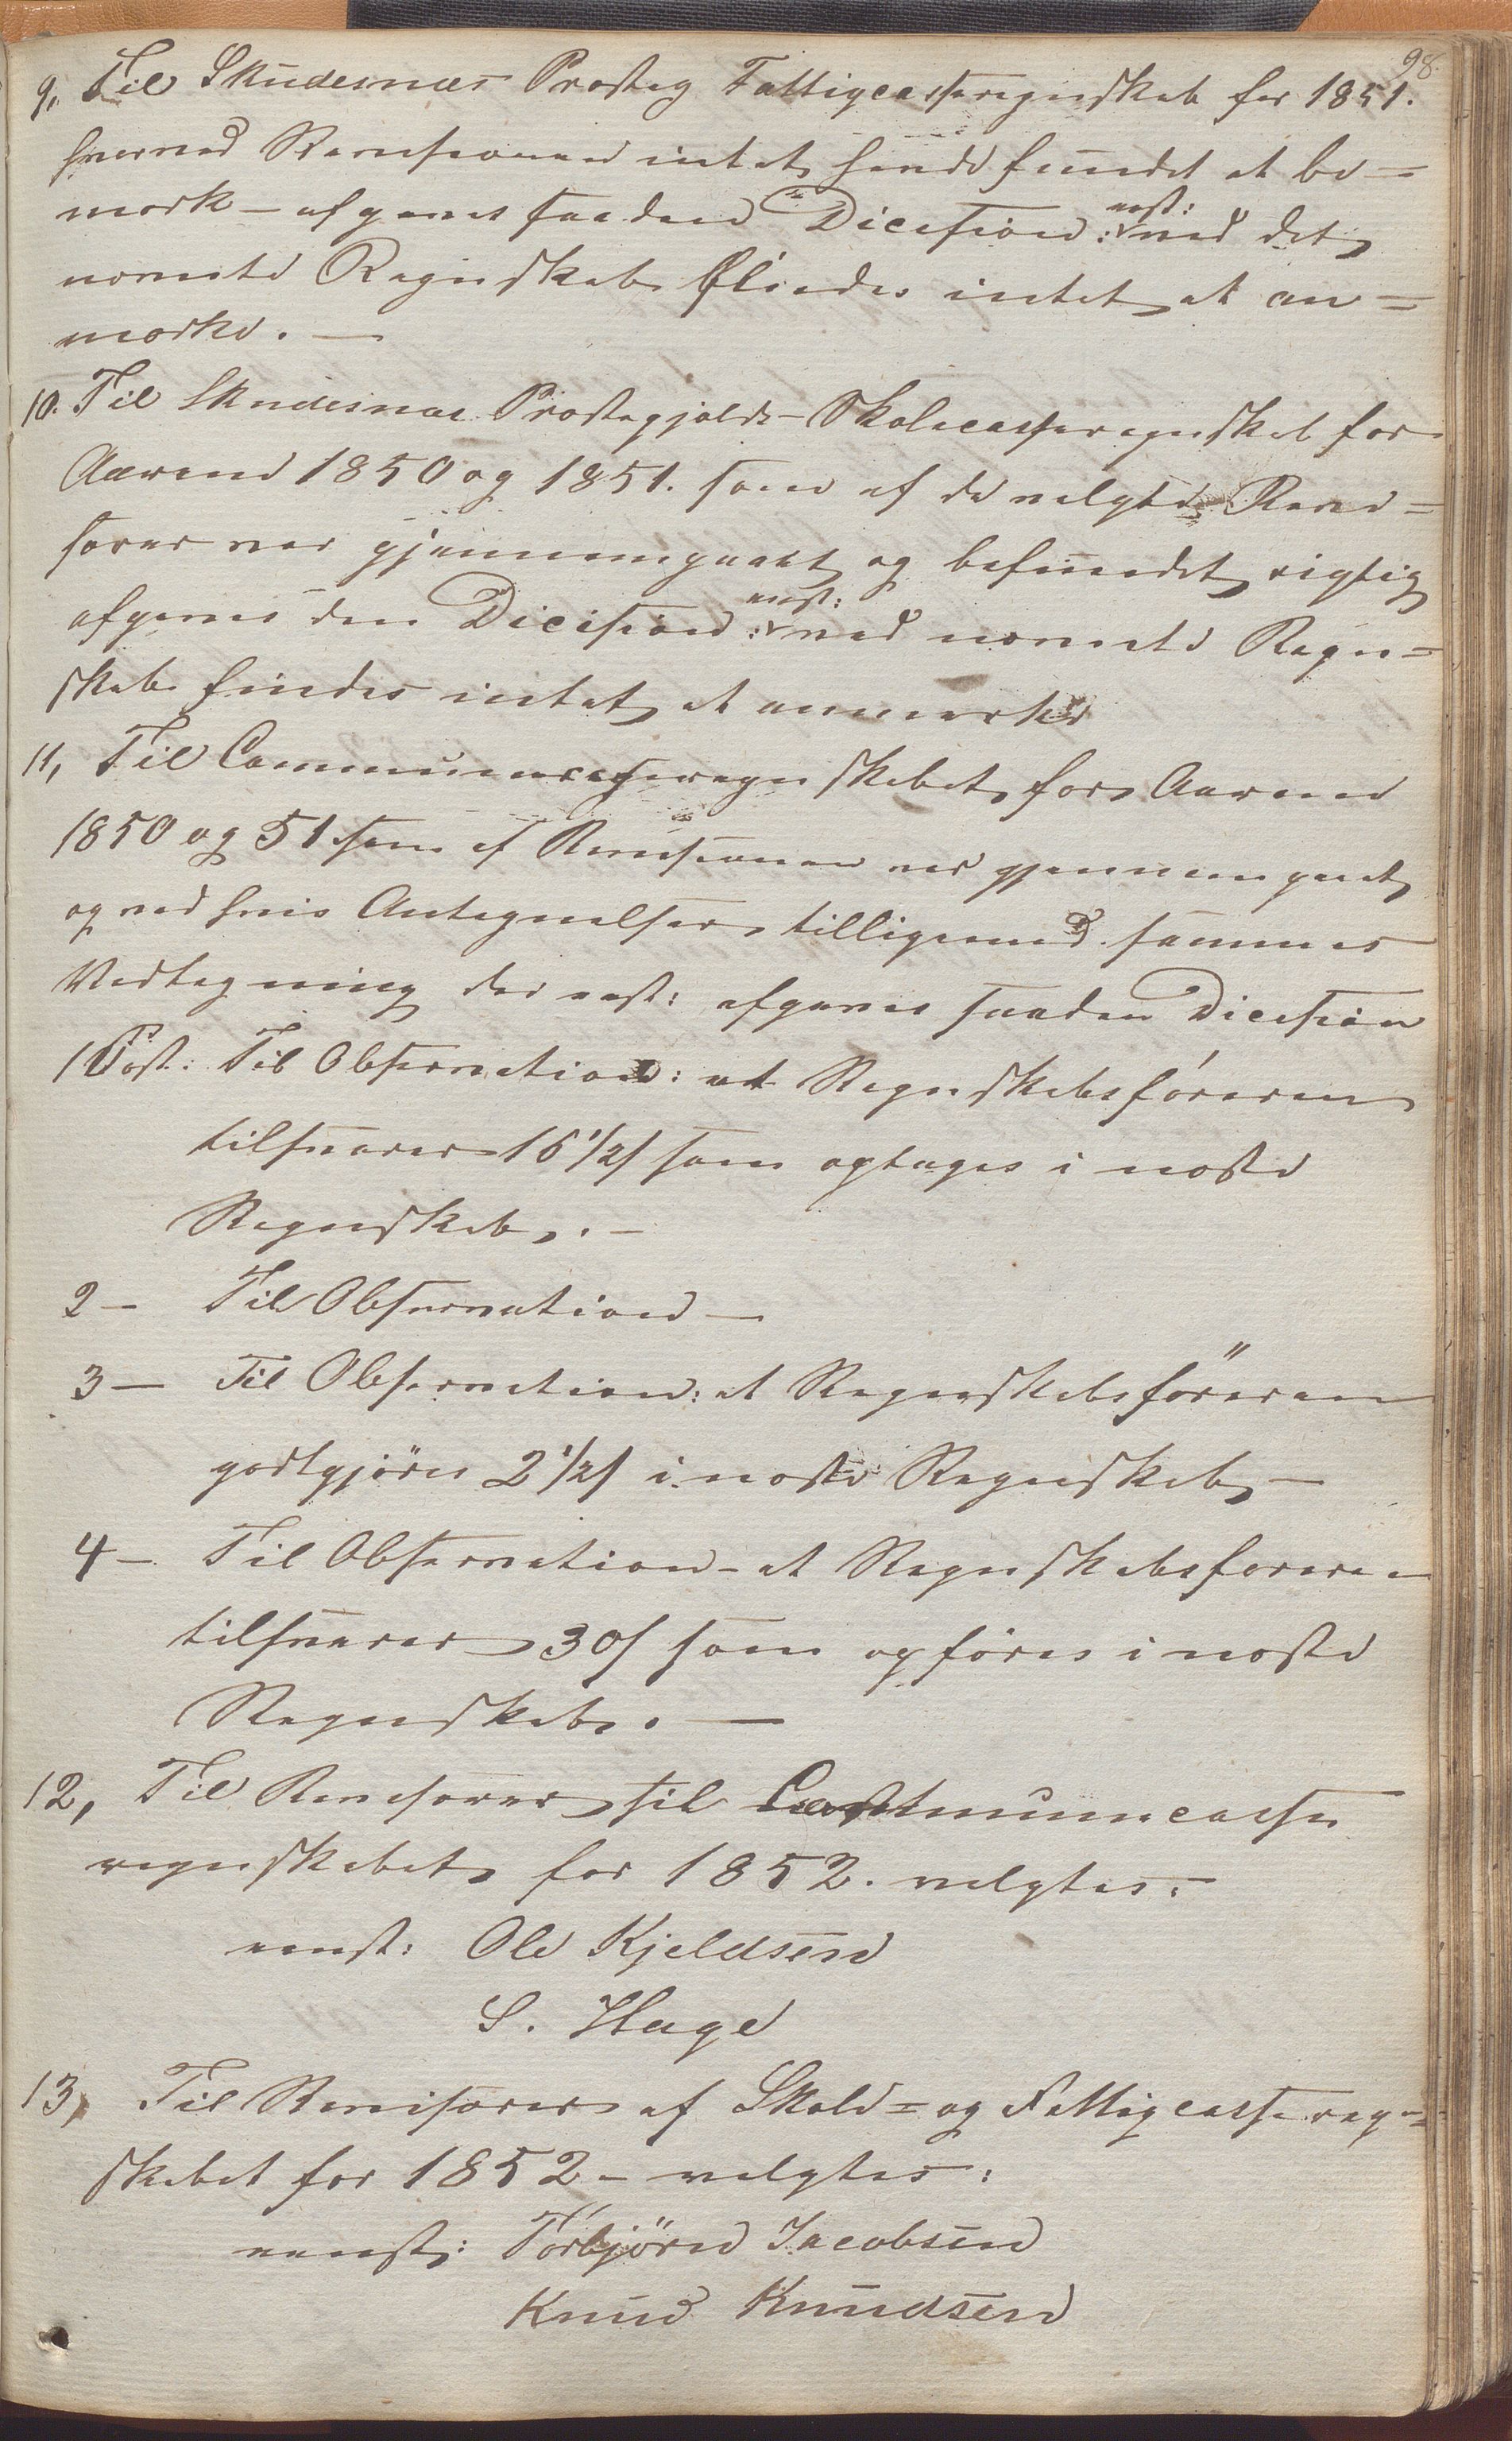 98.
9, Til Skudesnæs Præsteg Fattigcasseregnskab for 1851.
hvorved Revisionen intet havde fundet at be=
mærk – afgaves saaden Dicision: enst: ved det
nævnte Regnskab findes intet at an=
mærke. —
10. Til Skudesnæs Præstegjælds – Skolecasseregnskab for
Aarene 1850 og 1851. som af de valgte Revi=
sorer var gjennemgaaet og befundet rigtig
afgaves den Dicision: enst: ved nævnte Regn=
skab findes intet at anmærke
11, Til Communecasseregnskabet for Aarene
1850 og 51 som af Revisionen var gjennemgaaet
og ved hvis Antegnelser tilligemed sammes
Vedtegning der enst: afgaves saaden Dicision
1 Post: Til Observation: at Regnskabsføreren
tilsvarer 16 1/2 s som optages i næste
Regnskab. –
2 – Til Observation —
3 — Til Observation: at Regnskabsføreren
godtgjöres 2 1/2 s i næste Regnskab –
4 – Til Observation – at Regnskabsføreren
tilsvarer 30 s som opföres i næste
Regnskab. —
12, Til Revisorer til Communecasse
regnskabet for 1852. valgtes:
eenst: Ole Kjeldsen
S. Hage
13, Til Revisorer af Skole= og Fattigcasseregn=
skabet for 1852 – valgtes:
eenst: Torbjörn Jacobsen
Knud Knudsen